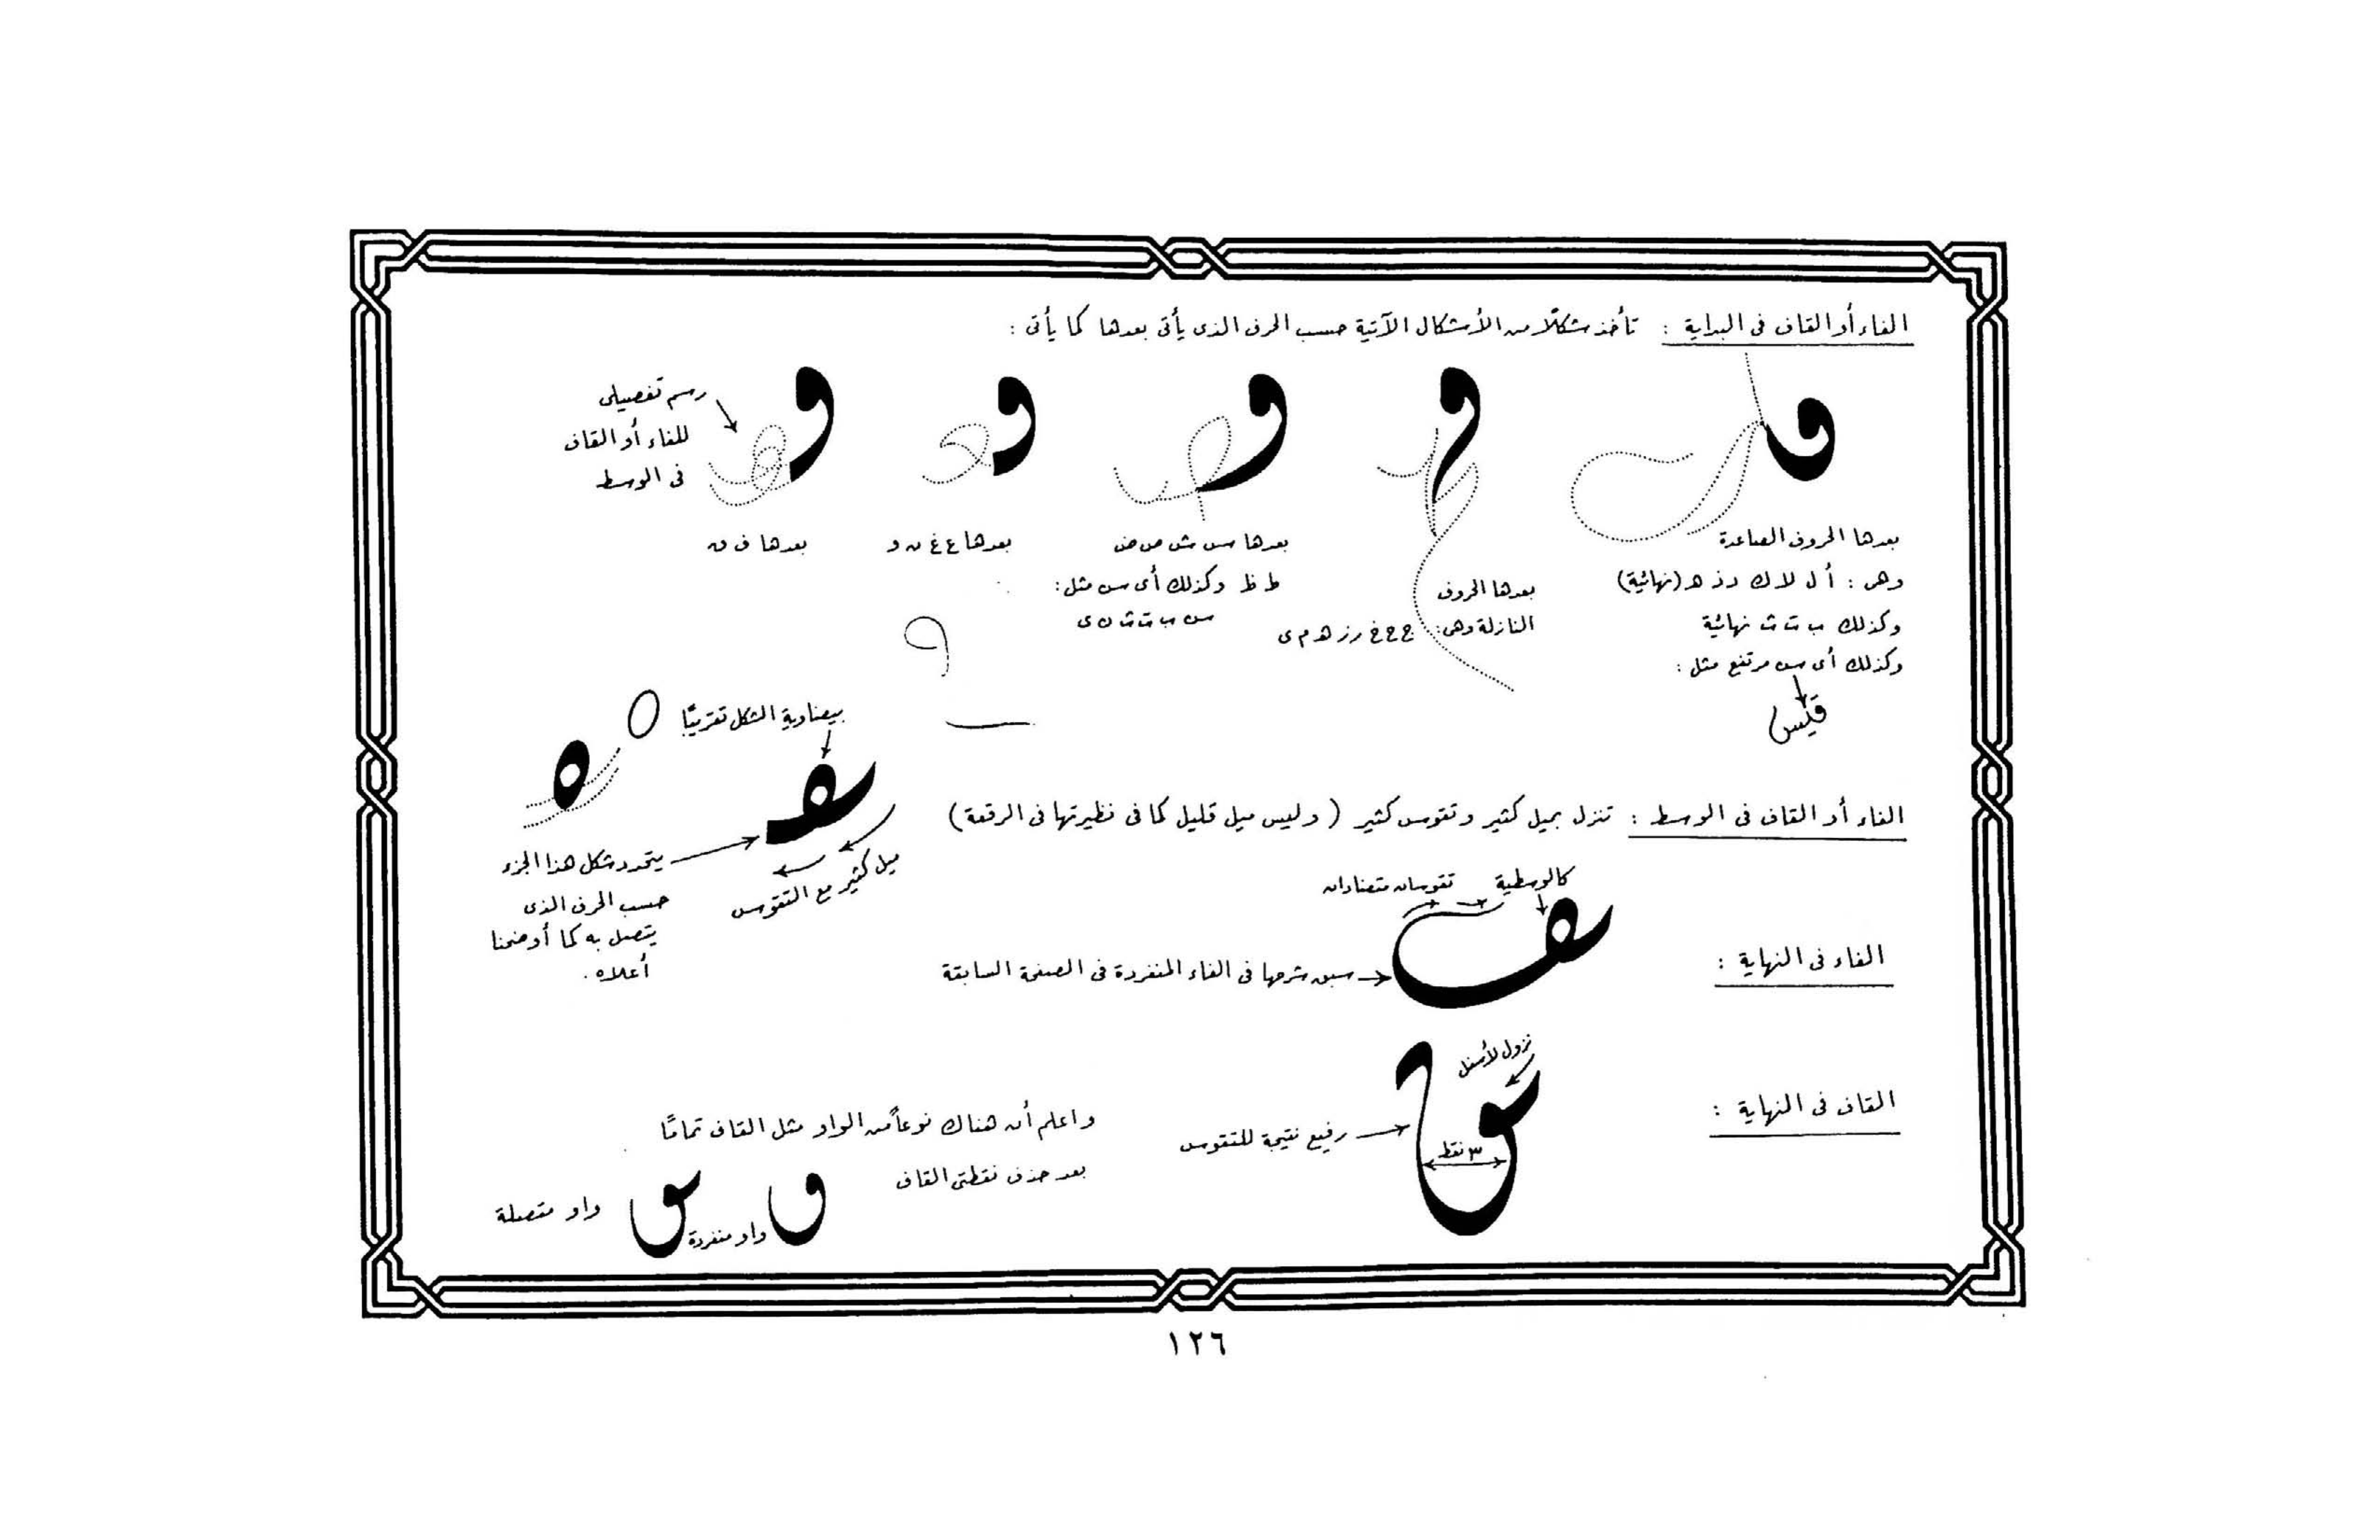 الفاء أو القاف فى البداية : تأخذ شكلًا من الأشكال الآتية حسب الحرف الذى يأتى بعدها كما يأتى :
بعدها الحروف الصاعدة
وهى : أ ل لا ك د ذ ه (نهائية)
وكذلك ب ت ث نهائية
وكذلك أى سن مرتفع مثل :
قليس
بعدها الحروف
النازلة وهى : ج ح خ ر ز ه م ى
بعدها س ش ص ض
ط ظ وكذلك أى سن مثل :
س ب ت ث ن ى
بعدها ع غ ن و
بعدها ف ق
رسم تفصيلى
للفاء أو القاف
فى الوسط
بيضاوية الشكل تقريبًا
الفاء أو القاف فى الوسط : تنزل بميل كثير وتقوس كثير ( وليس ميل قليل كما فى نظيرتها فى الرقعة )
ميل كثير مع التقوس
يتحدد شكل هذا الجزء
حسب الحرف الذى
يتصل به كما أوضحنا
أعلاه .
الفاء فى النهاية :
كالوسطية
تقوسان متضادان
سبق شرحها فى الفاء المنفردة فى الصفحة السابقة
القاف فى النهاية :
نزول لأسفل
٣ نقط
رفيع نتيجة للتقوس
واعلم أن هناك نوعاً من الواو مثل القاف تمامًا
بعد حذف نقطتى القاف
واو منفردة
واو متصلة
١٢٦